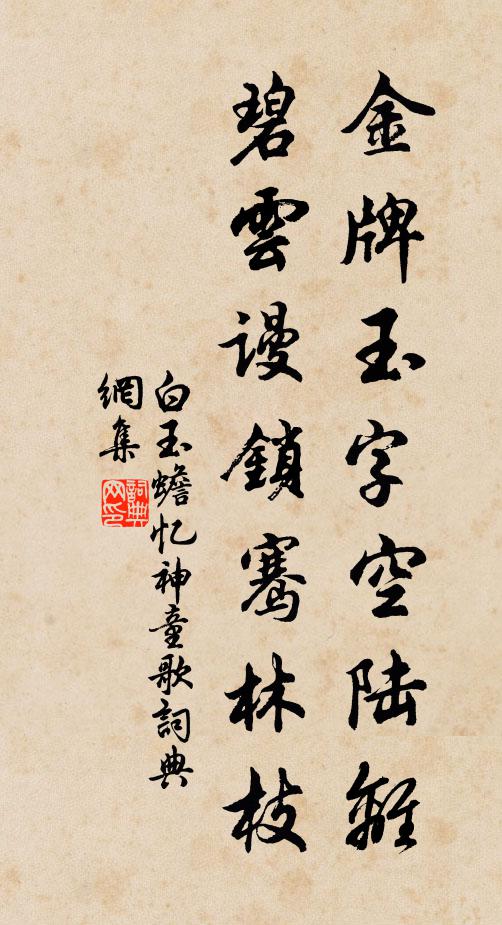 金牌玉字空陆離
碧雲谩鎖骞林枝
白玉蟾忆神童歌詞典
網集
詞典
网印